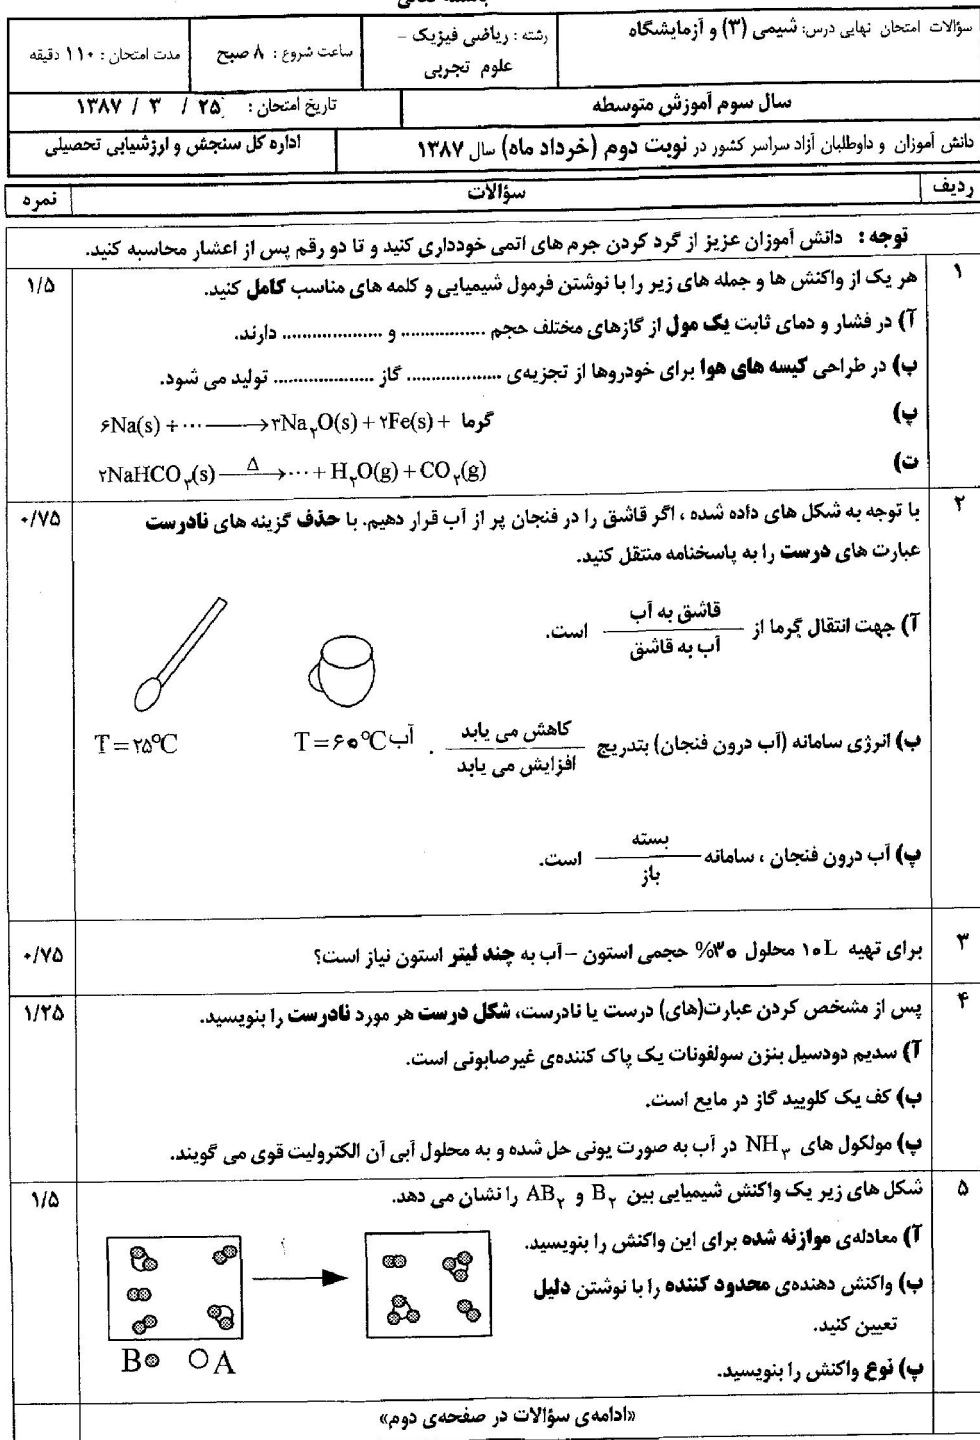 سؤالات امتحان نهایی درس: شیمی (۳) و آزمایشگاه
رشته : ریاضی فیزیک –
علوم تجربی
ساعت شروع : ۸ صبح
مدت امتحان : ۱۱۰ دقیقه
سال سوم آموزش متوسطه
تاریخ امتحان : ۲۵ / ۳ / ۱۳۸۷
دانش آموزان و داوطلبان آزاد سراسر کشور در نوبت دوم (خرداد ماه) سال ۱۳۸۷
اداره کل سنجش و ارزشیابی تحصیلی
ردیف
سؤالات
نمره
توجه : دانش آموزان عزیز از گرد کردن جرم های اتمی خودداری کنید و تا دو رقم پس از اعشار محاسبه کنید.
۱
هر یک از واکنش ها و جمله های زیر را با نوشتن فرمول شیمیایی و کلمه های مناسب کامل کنید.
۱/۵
آ) در فشار و دمای ثابت یک مول از گازهای مختلف حجم ................. و .................... دارند.
ب) در طراحی کیسه های هوا برای خودروها از تجزیه‌ی ................... گاز .................... تولید می شود.
پ) ۶Na(s) + ··· ⟶ ۳Na۲O(s) + ۲Fe(s) + گرما
ت) ۲NaHCO۳(s) —Δ→ ··· + H۲O(g) + CO۲(g)
۲
با توجه به شکل های داده شده ، اگر قاشق را در فنجان پر از آب قرار دهیم. با حذف گزینه های نادرست
۰/۷۵
عبارت های درست را به پاسخنامه منتقل کنید.
آ) جهت انتقال گرما از قاشق به آب / آب به قاشق است.
T=۲۵°C
T=۶۰°C آب
ب) انرژی سامانه (آب درون فنجان) بتدریج کاهش می یابد / افزایش می یابد .
پ) آب درون فنجان ، سامانه بسته / باز است.
۳
برای تهیه ۱۰L محلول ۳۰% حجمی استون – آب به چند لیتر استون نیاز است؟
۰/۷۵
۴
پس از مشخص کردن عبارت(های) درست یا نادرست، شکل درست هر مورد نادرست را بنویسید.
۱/۲۵
آ) سدیم دودسیل بنزن سولفونات یک پاک کننده‌ی غیرصابونی است.
ب) کف یک کلویید گاز در مایع است.
پ) مولکول های NH۳ در آب به صورت یونی حل شده و به محلول آبی آن الکترولیت قوی می گویند.
۵
شکل های زیر یک واکنش شیمیایی بین B۲ و AB۲ را نشان می دهد.
۱/۵
آ) معادله‌ی موازنه شده برای این واکنش را بنویسید.
ب) واکنش دهنده‌ی محدود کننده را با نوشتن دلیل
تعیین کنید.
پ) نوع واکنش را بنویسید.
B
A
«ادامه‌ی سؤالات در صفحه‌ی دوم»